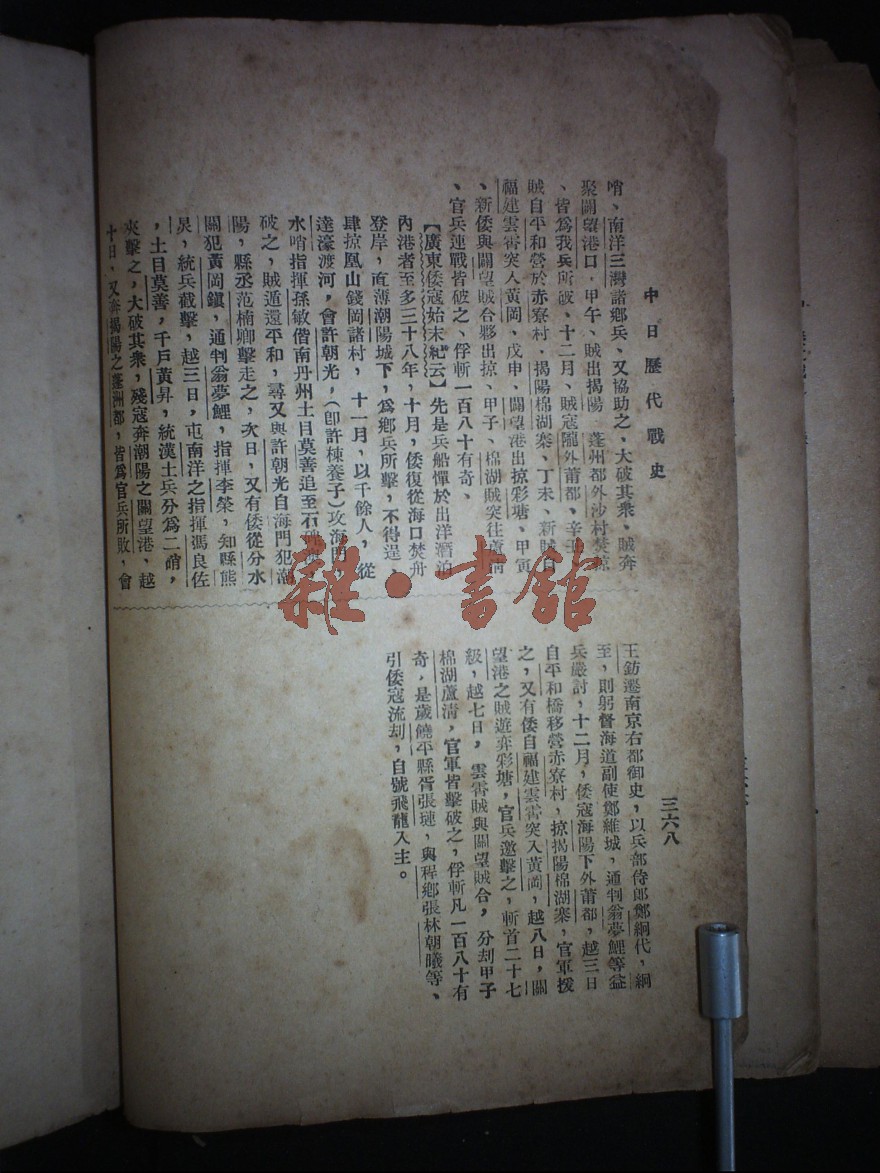 中日歷代戰史
三六八
哨、南洋三灣諸鄉兵、又協助之、大破其衆、賊奔
聚闢望港口、甲午、賊出揭陽 蓬州都外沙村焚掠
、皆爲我兵所破、十二月、賊寇隴外莆都、辛
賊自平和營於赤寮村、揭陽棉湖寨、丁未、新賊自
福建雲霄突入黃岡、戊申、闢望港出掠彩塘、甲寅
、新倭與闢望賊合夥出掠、甲子、棉湖賊突往蘆清
、官兵連戰皆破之、俘斬一百八十有奇、
【廣東倭寇始末紀云】先是兵船憚於出洋潛泊
內港者至多三十八年、十月、倭復從海口焚舟
登岸、直薄潮陽城下、爲鄉兵所擊、不得逞、
肆掠凰山錢岡諸村、十一月、以千餘人、從
達濠渡河、會許朝光、(卽許棟養子)攻海門、
水哨指揮孫敏偕南丹州土目莫善追至石
破之、賊遁還平和、尋又與許朝光自海門犯潮
陽、縣丞范楠卿擊走之、次日、又有倭從分水
關犯黃岡鎭、通判翁夢鯉、指揮李榮、知縣熊
炅、統兵截擊、越三日、屯南洋之指揮馮良佐
、土目莫善、千戶黃昇、統漢土兵分爲二哨、
夾擊之、大破其衆、殘寇奔潮陽之關望港、越
十日、又奔揭陽之蓬洲都、皆爲官兵所敗、會
王鈁遷南京右都御史、以兵部侍郎鄭絅代、絅
至、則躬督海道副使鄭維城、通判翁夢鯉等益
兵嚴討、十二月、倭寇海陽下外莆都、越三日
自平和橋移營赤寮村、掠揭陽棉湖寨、官軍援
之、又有倭自福建雲霄突入黃岡、越八日、關
望港之賊遊弈彩塘、官兵邀擊之、斬首二十七
級、越七日、雲霄賊與關望賊合、分刦甲子
棉湖蘆清、官軍皆擊破之、俘斬凡一百八十有
奇、是歲饒平縣胥張璉、與程鄉張林朝曦等、
引倭寇流刦、自號飛龍人主。
雜·書館